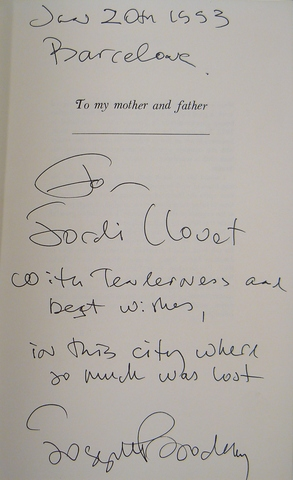 Jan 20th 1993
Barcelona.
To my mother and father
To
Jordi Llovet
with tenderness and
best wishes,
in this city where
so much was lost
Joseph Brodsky